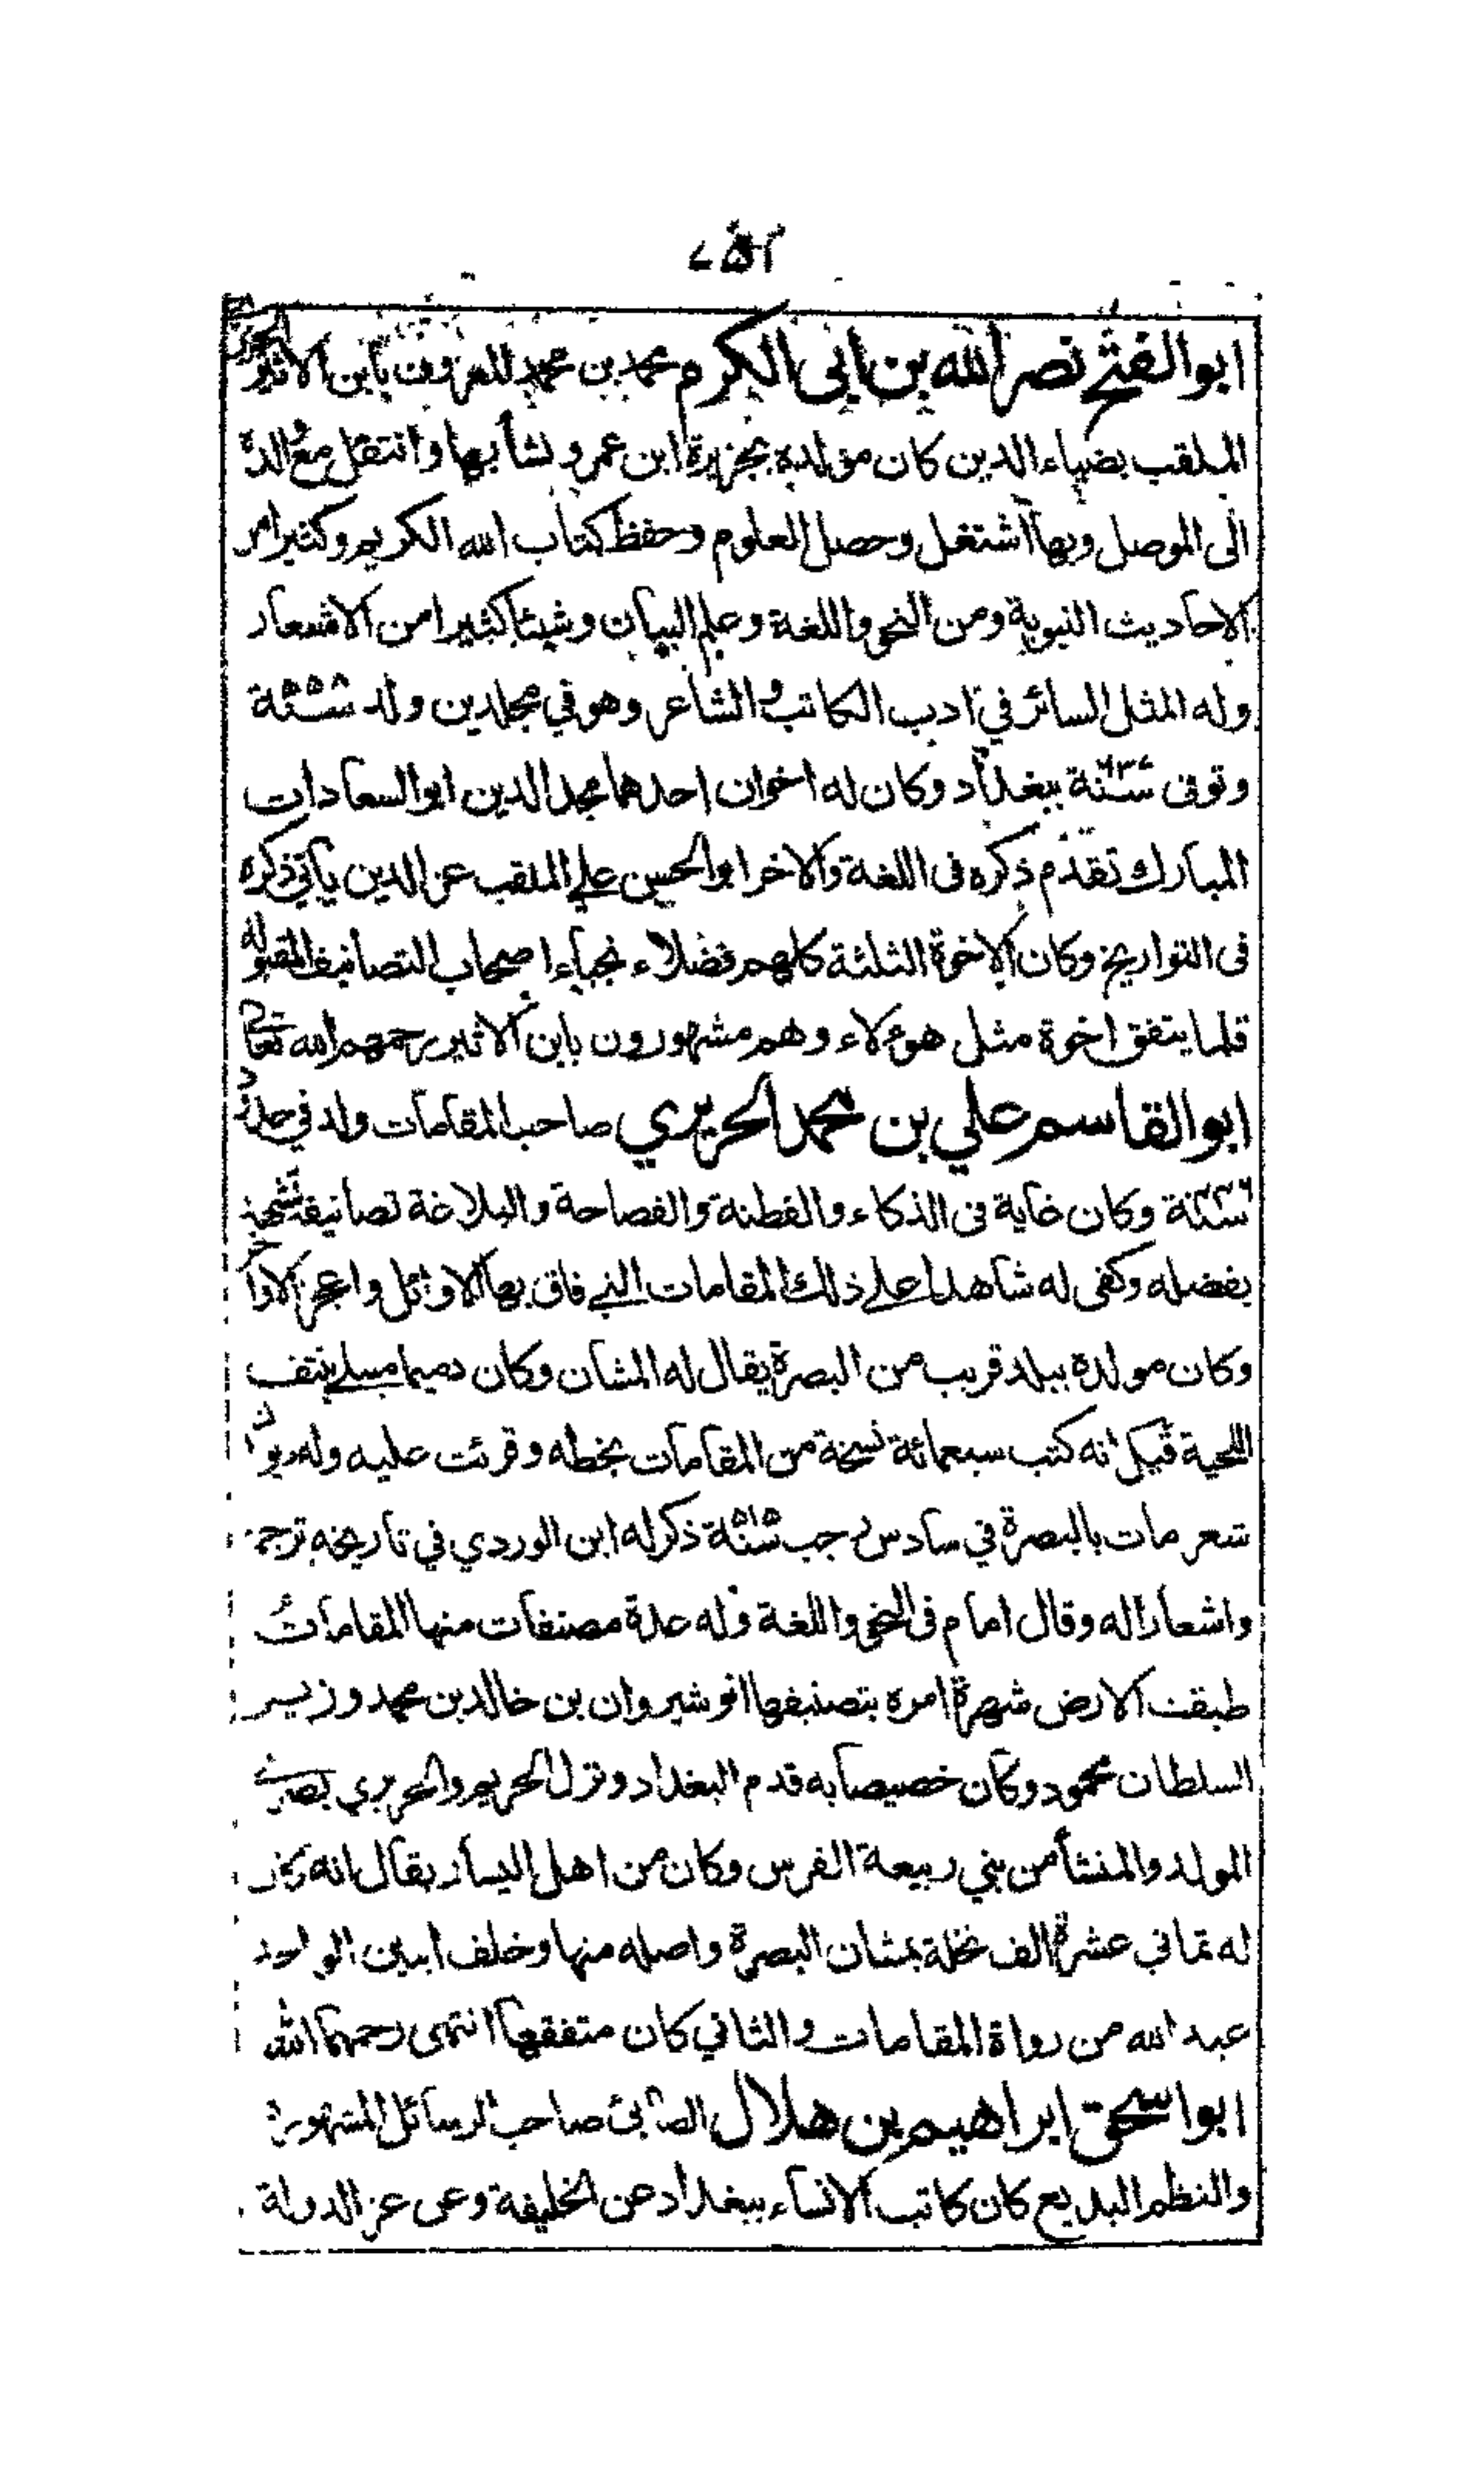 ابو الفتح نصر الله بن ابى الكرم محمد بن محمد المعروف بابن الاثير الجزري
الملقب بضياء الدين كان مولده بجزيرة ابن عمر و نشأ بها وانتقل مع والده
الى الموصل وبها اشتغل وحصل العلوم وحفظ كتاب الله الكريم وكثيرا من
الاحاديث النبوية ومن النحو واللغة وعلم البيان وشيئا كثيرا من الاشعار
وله المثل السائر في ادب الكاتب والشاعر وهو في مجلدين ولد ٥٥٨ سنة
وتوفى سنة ببغداد وكان له اخوان احدهما مجد الدين ابو السعادات
المبارك تقدم ذكره فى اللغة والاخر ابو الحسن علي الملقب عز الدين يأتي ذكره
فى التواريخ وكان الاخوة الثلثة كلهم فضلاء نجباء اصحاب التصانيف المقبولة
قلما يتفق اخوة مثل هؤلاء وهم مشهورون بابن الاثير رحمهم الله تعالى
ابو القاسم علي بن محمد الحريري صاحب المقامات ولد في حدود
سنة ٤٤٦ وكان غاية فى الذكاء والفطنة والفصاحة والبلاغة تصانيفه تشهد
بفضله وكفى له شاهدا على ذلك المقامات التي فاق بها الاوائل واعجز الاواخر
وكان مولده ببلد قريب من البصرة يقال له المشان وكان دميما مبتلى بنتف
اللحية قيل انه كتب سبعمائة نسخة من المقامات بخطه وقرئت عليه وله ديوان
شعر مات بالبصرة في سادس رجب سنة ٥١٥ ذكر له ابن الوردي في تاريخه ترجمة
واشعارا له وقال امام فى النحو واللغة وله عدة مصنفات منها المقامات
طبقت الارض شهرة امره بتصنيفها انوشيروان بن خالد بن محمد وزير
السلطان محمود وكان خصيصا به قدم البغداد ونزل الحريم والحريري بصري
المولد والمنشأ من بني ربيعة الفرس وكان من اهل اليسار يقال انه كان
له ثماني عشرة الف نخلة بمشان البصرة واصله منها وخلف ابنين الواحد
عبد الله من رواة المقامات والثاني كان متفقها انتهى رحمهما الله
ابو اسحق ابراهيم بن هلال الصابئ صاحب الرسائل المشهورة
والنظم البديع كان كاتب الانشاء ببغداد عن الخليفة وعن عز الدولة